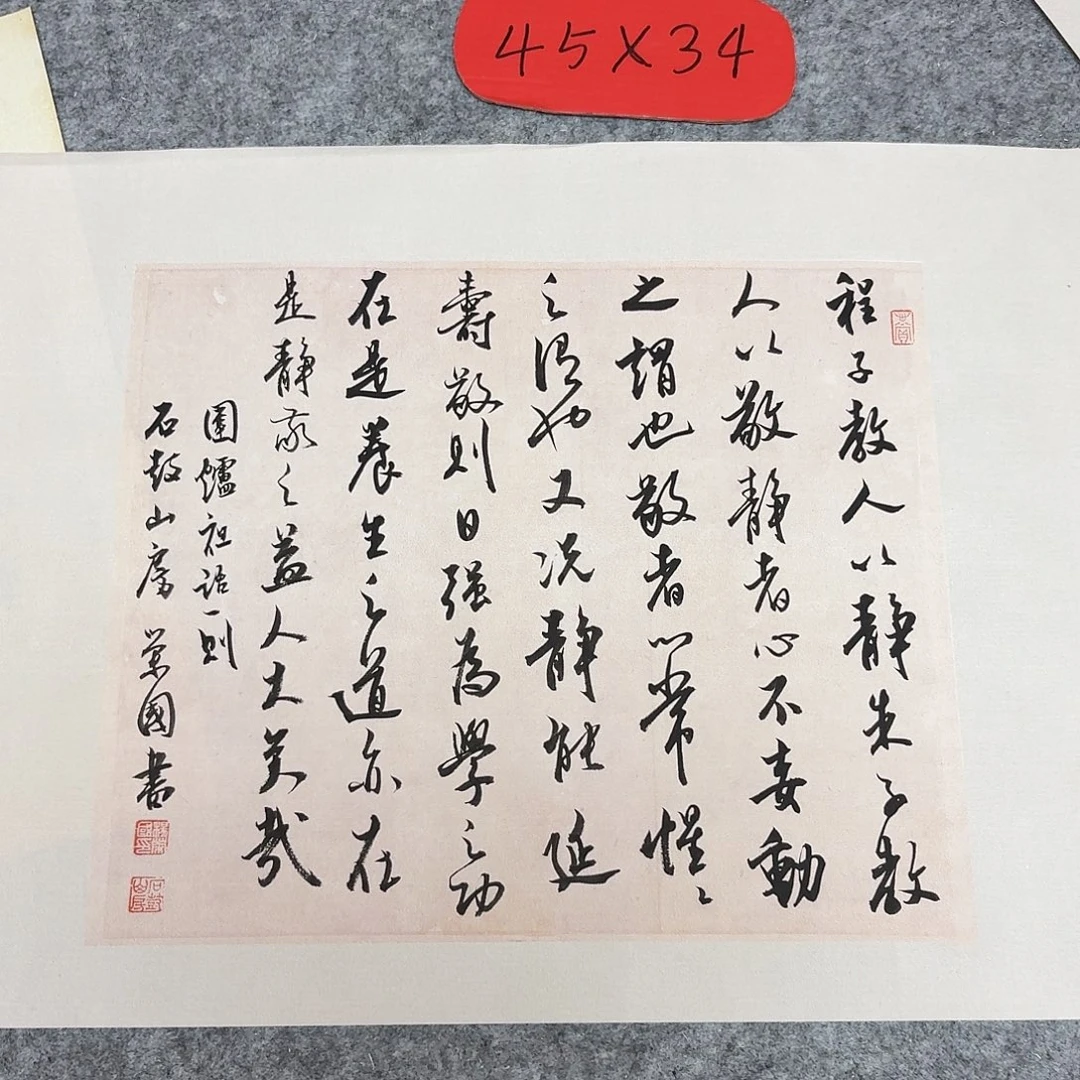 45X34
程子教人以静朱子教
人以敬静者心不妄動
之謂也敬者心常惺〻
之謂也又况静能延
壽敬則日强為學之功
在是養生之道亦在
是静敬之益人大矣哉
圍爐話一則
石鼓山房 荣國書
石鼓山房